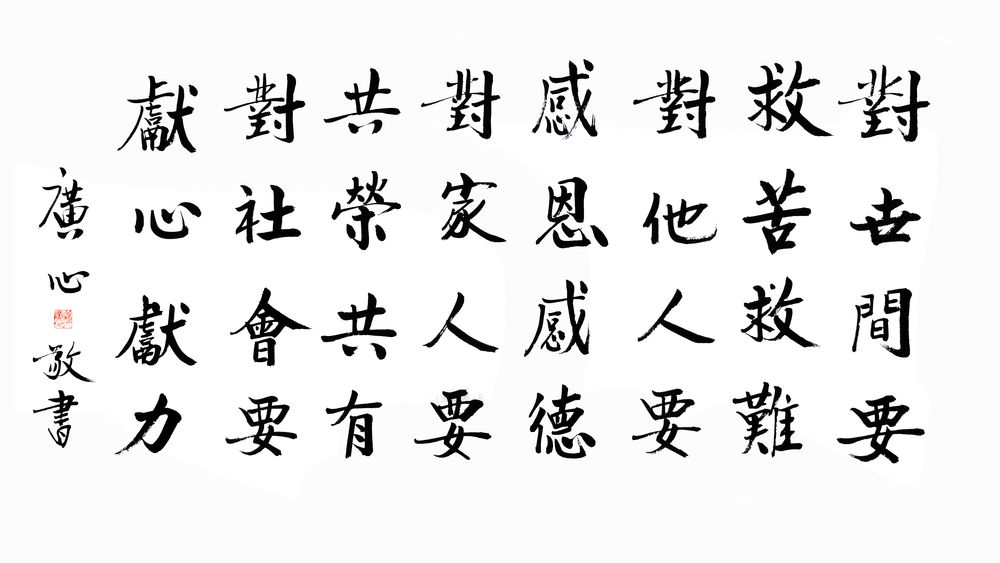 對世間要
救苦救難
對他人要
感恩感德
對家人要
共榮共有
對社會要
獻心獻力
廣心敬書